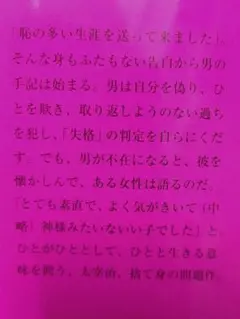 「恥の多い生涯を送って来ました」
そんな身もふたもない告白から男の
手記は始まる。男は自分を偽り、ひ
とを欺き、取り返しようのない過ち
を犯し、「失格」の判定を自らにくだ
す。でも、男が不在になると、彼を
懐かしんで、ある女性は語るのだ。
「とても素直で、よく気がきいて（中
略）神様みたいないい子でした」と
ひとがひととして、ひとと生きる意
味を問う、太宰治、捨て身の問題作。